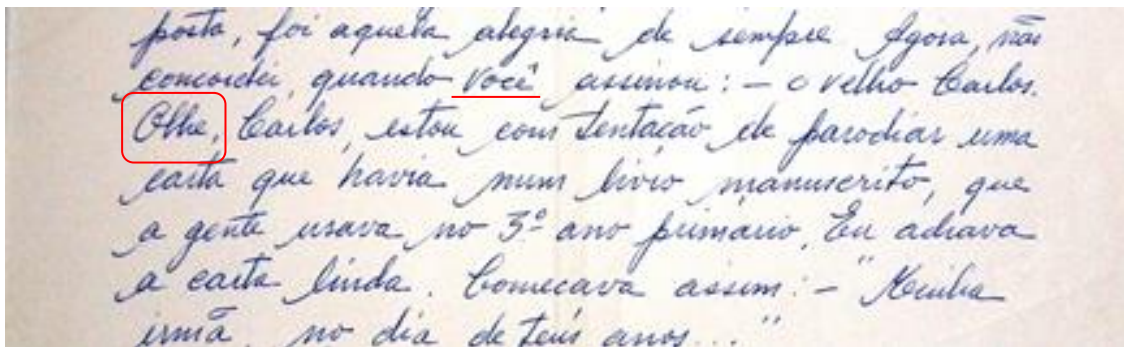 posta, foi aquela alegria de sempre Agora, não
concordei, quando você assinou: - o velho Carlos.
Olhe, Carlos, estou com tentação de parodiar uma
carta que havia num livro manuscrito, que
a gente usava no 3º ano primário. Eu achava
a carta linda. Começava assim: - "Minha
irmã, no dia de teus anos..."